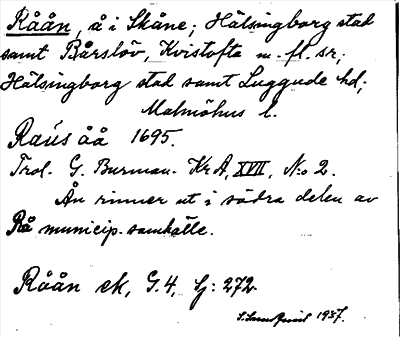 Råån, å i Skåne; Hälsingborg stad
samt Bårslöv, Kvistofta m. fl. sr;
Hälsingborg stad samt Luggude hd;
Malmöhus l.
Raus åå 1695.
Trol. G. Burman. Kr A, XVII, No 2.
Ån rinner ut i södra delen av
Rå municip. samhälle.
Råån ek, G. 4, Lj: 272.
1937.